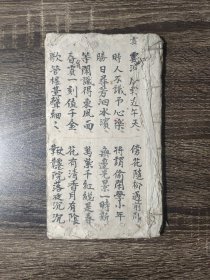 雲淡 近午天 傍花隨柳過前川
時人不識予心樂 將謂偷閒學少年
勝日尋芳泗水濱 無邊光景一時新
等閑識得東風面 萬紫千紅總是春
春宵一刻值千金 花有清香月有陰
歌管樓臺聲細細 鞦韆院落夜沉沉